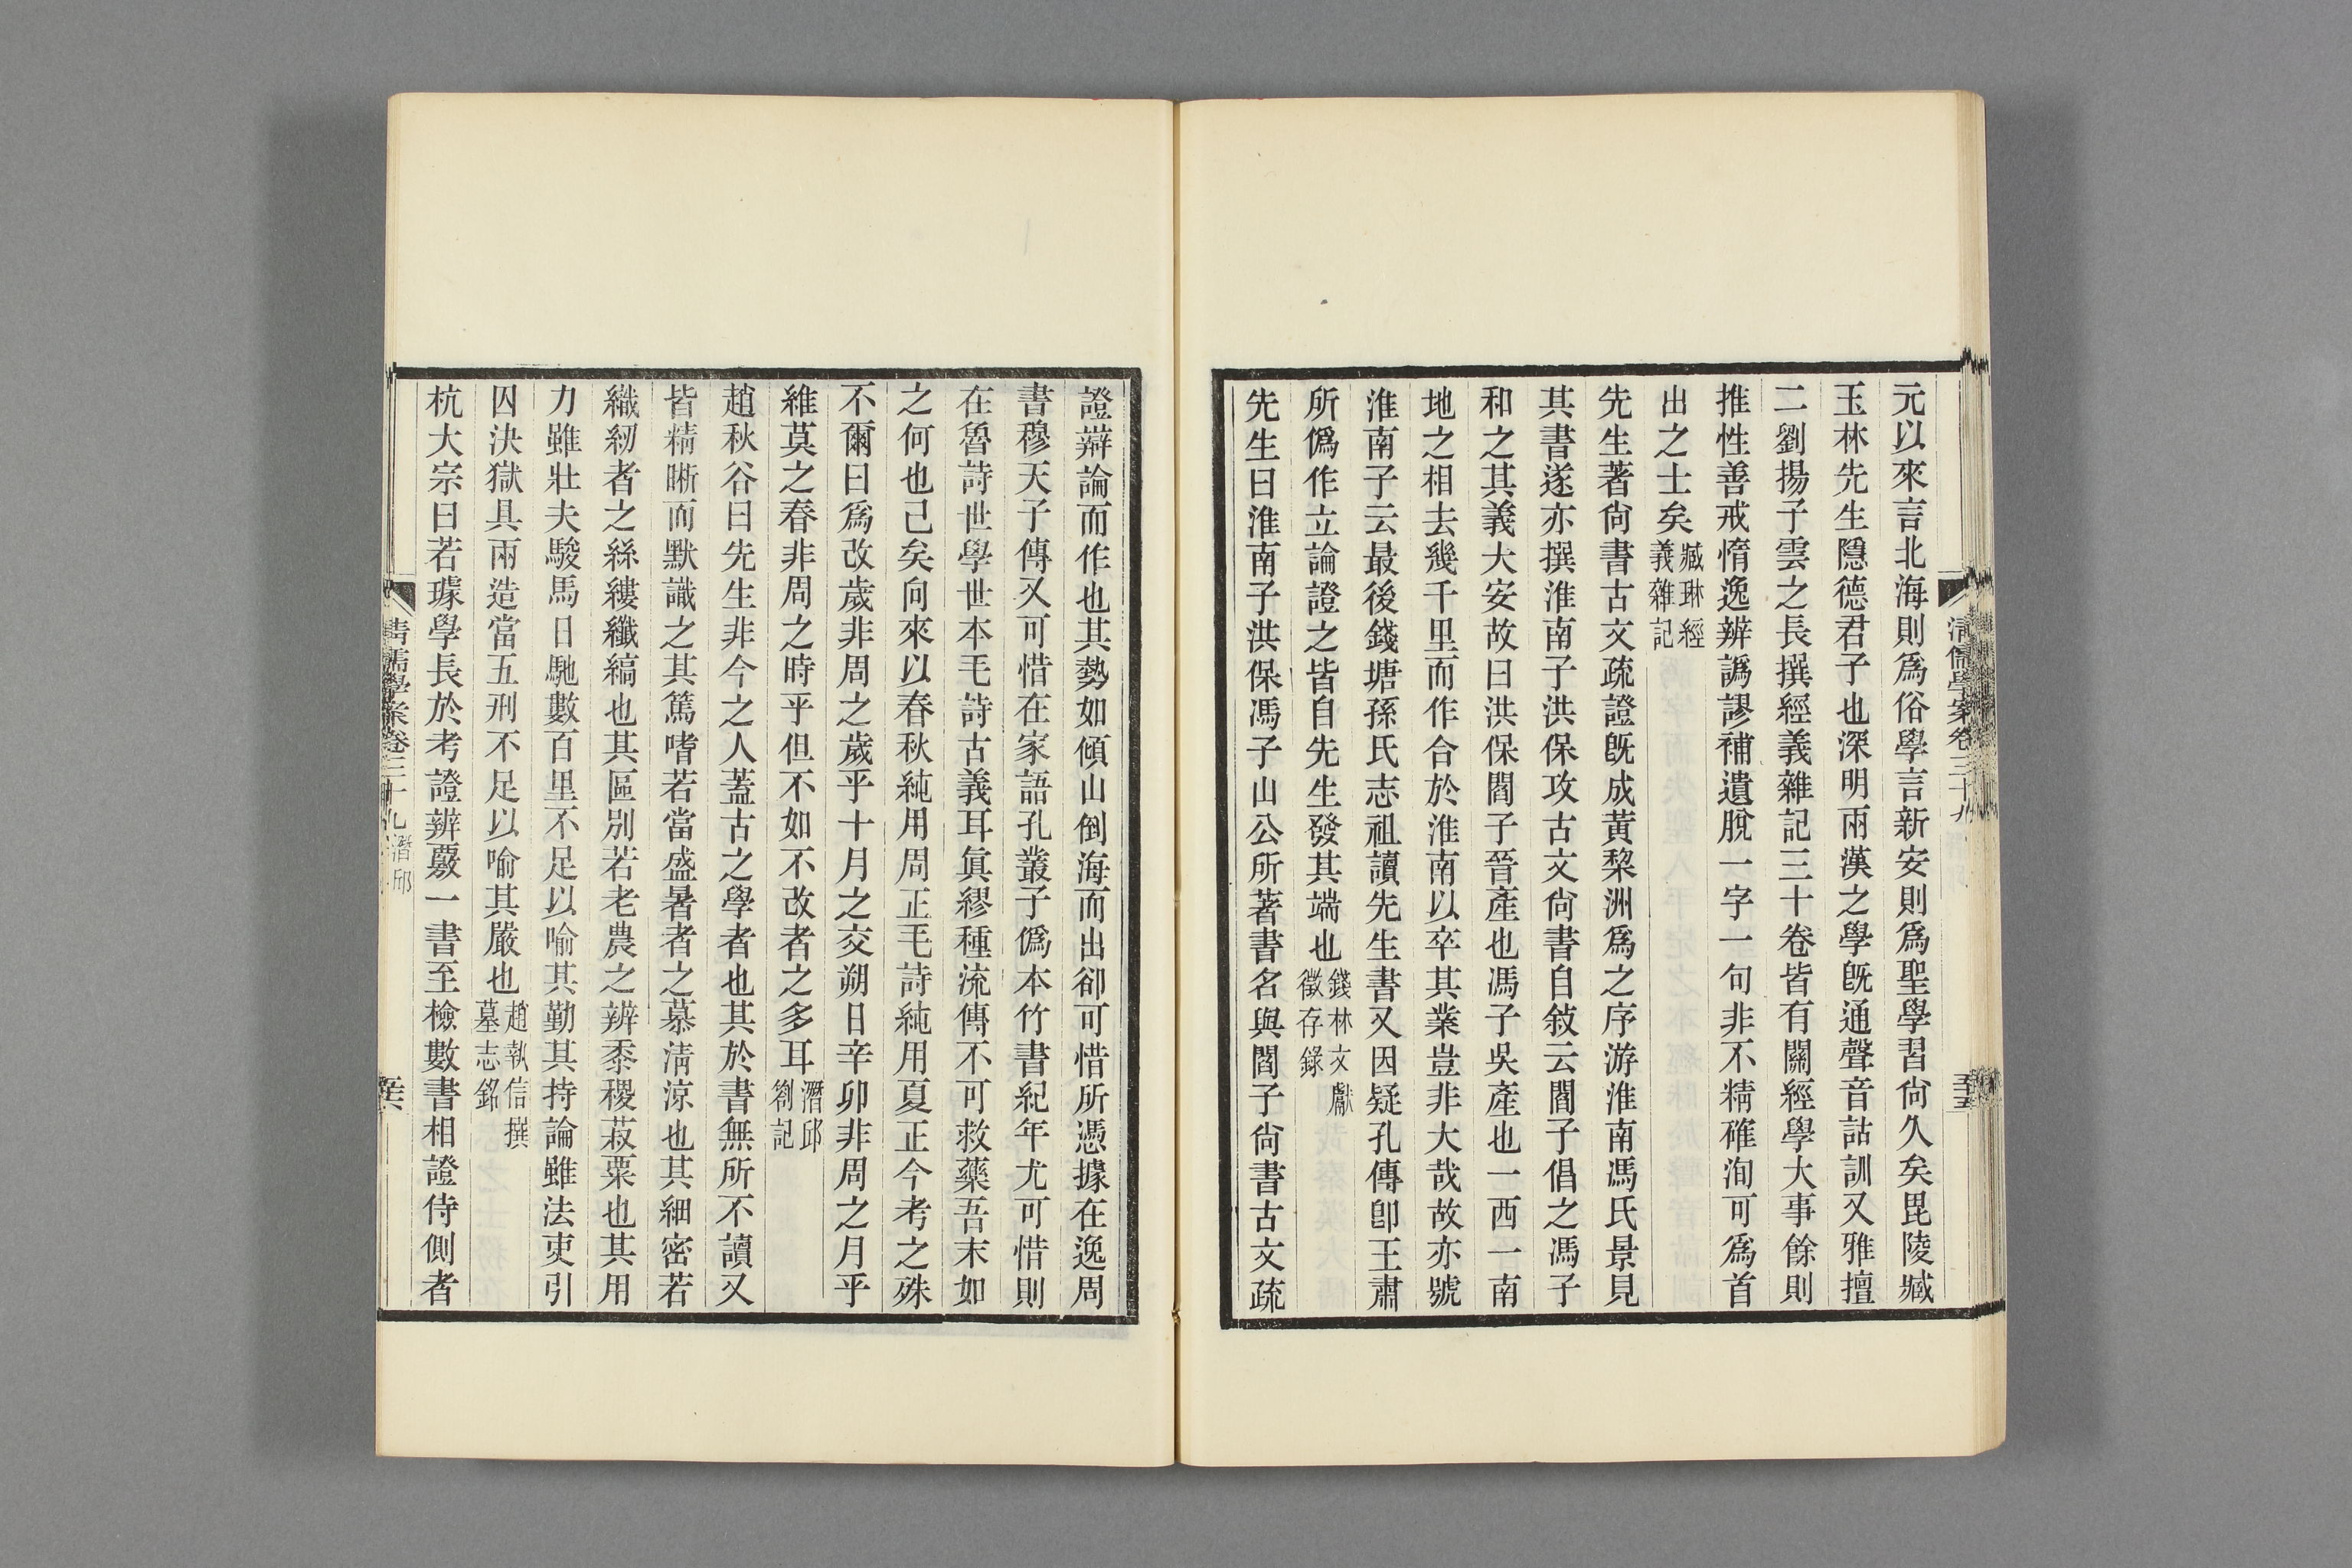 元以來言北海則爲俗學言新安則爲聖學習尙久矣毘陵臧
玉林先生隱德君子也深明兩漢之學旣通聲音詁訓又雅擅
二劉揚子雲之長撰經義雜記三十卷皆有關經學大事餘則
推性善戒惰逸辨譌謬補遺脫一字一句非不精確洵可爲首
出之士矣臧琳經義雜記
先生著尙書古文疏證旣成黃棃洲爲之序游淮南馮氏景見
其書遂亦撰淮南子洪保攻古文尙書自敍云閻子倡之馮子
和之其義大安故曰洪保閻子晉產也馮子吳產也一西一南
地之相去幾千里而作合於淮南以卒其業豈非大哉故亦號
淮南子云最後錢塘孫氏志祖讀先生書又因疑孔傳卽王肅
所僞作立論證之皆自先生發其端也錢林文獻徵存錄
先生曰淮南子洪保馮子山公所著書名與閻子尙書古文疏
清儒學案卷三十九
五十五
證辨論而作也其勢如傾山倒海而出卻可惜所憑據在逸周
書穆天子傳又可惜在家語孔叢子僞本竹書紀年尤可惜則
在魯詩世學世本毛詩古義耳眞繆種流傳不可救藥吾末如
之何也已矣向來以春秋純用周正毛詩純用夏正今考之殊
不爾曰爲改歲非周之歲乎十月之交朔日辛卯非周之月乎
維莫之春非周之時乎但不如不改者之多耳潛邱劄記
趙秋谷曰先生非今之人蓋古之學者也其於書無所不讀又
皆精晰而默識之其篤嗜若當盛暑者之慕淸涼也其細密若
織紉者之絲縷纖縞也其區別若老農之辨黍稷菽粟也其用
力雖壯夫駿馬日馳數百里不足以喻其勤其持論雖法吏引
囚決獄具兩造當五刑不足以喻其嚴也趙執信撰墓志銘
杭大宗曰若璩學長於考證辨覈一書至檢數書相證侍側者
清儒學案卷三十九 潛邱
五十六